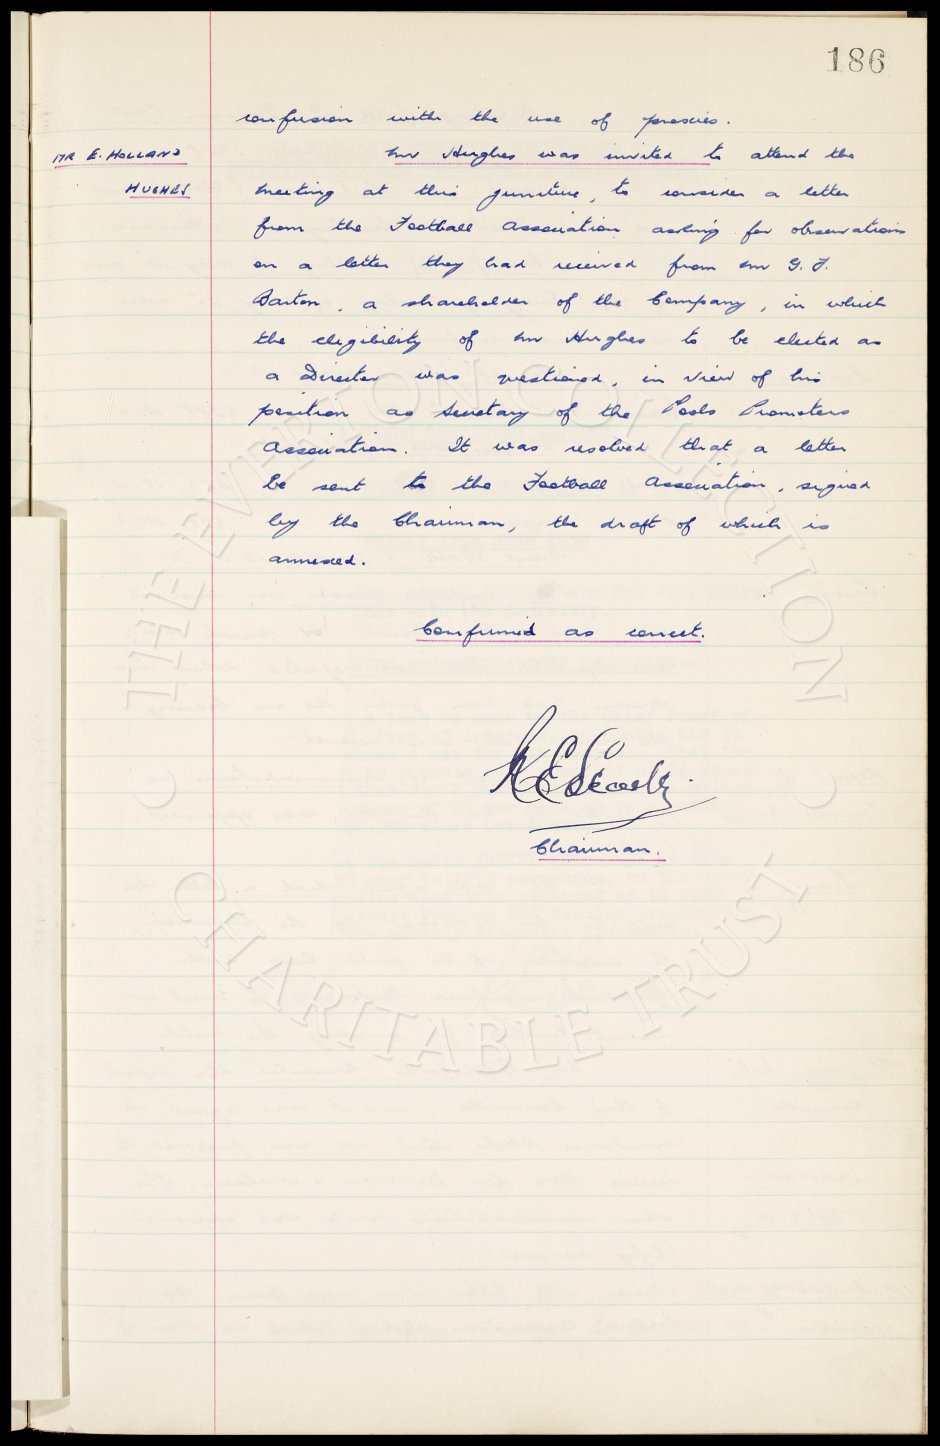 186
confusion with the use of proxies.
MR E. HOLLAND
HUGHES
Mr Hughes was invited to attend the
meeting at this juncture, to consider a letter
from the Football Association asking for observations
on a letter they had received from Mr G. J.
Barton, a shareholder of the Company, in which
the eligibility of Mr Hughes to be elected as
a Director was questioned, in view of his
position as Secretary of the Pools Promoters
Association. It was resolved that a letter
be sent to the Football Association, signed
by the Chairman, the draft of which is
annexed.
Confirmed as correct.
Chairman.
THE EVERTON COLLECTION
CHARITABLE TRUST